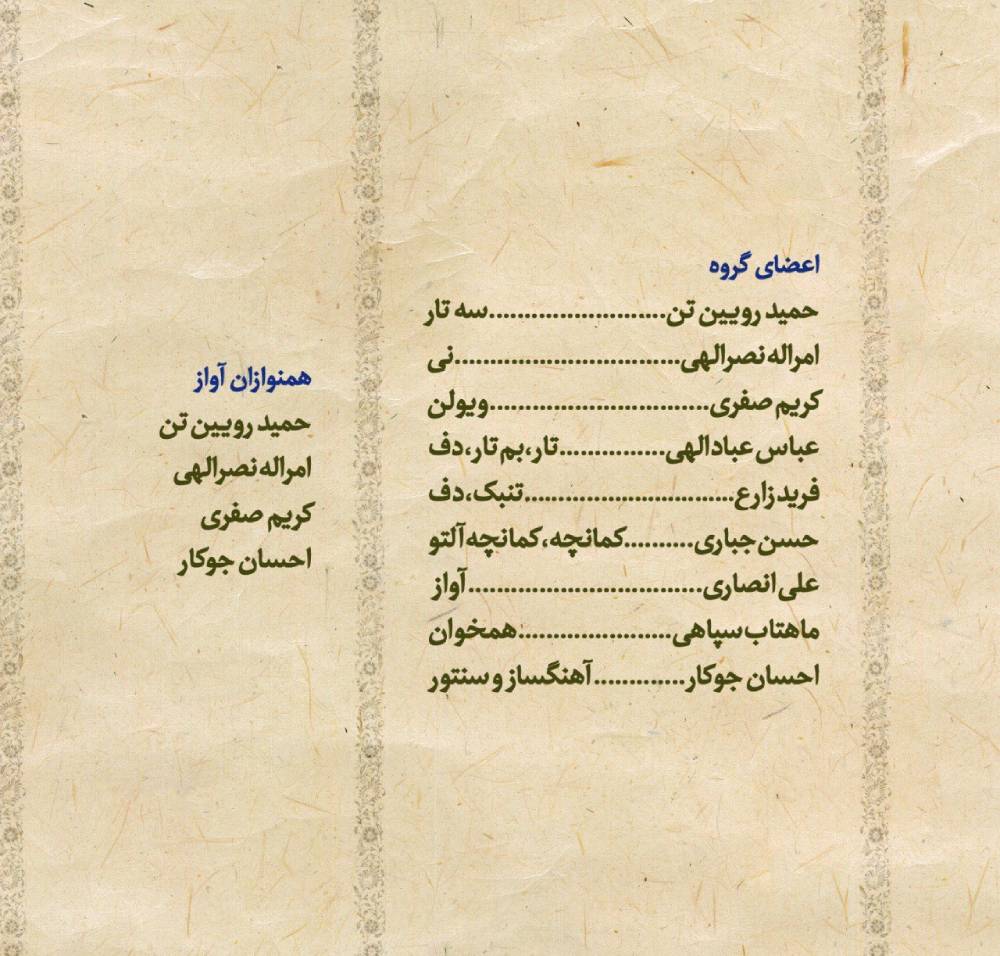 اعضای گروه
حمید رویین تن.........................سه تار
امراله نصرالهی................................نی
کریم صفری...............................ویولن
عباس عبادالهی...............تار،بم تار،دف
فرید زارع..............................تنبک،دف
حسن جباری..........کمانچه،کمانچه آلتو
علی انصاری.................................آواز
ماهتاب سپاهی......................همخوان
احسان جوکار.............آهنگساز و سنتور
همنوازان آواز
حمید رویین تن
امراله نصرالهی
کریم صفری
احسان جوکار